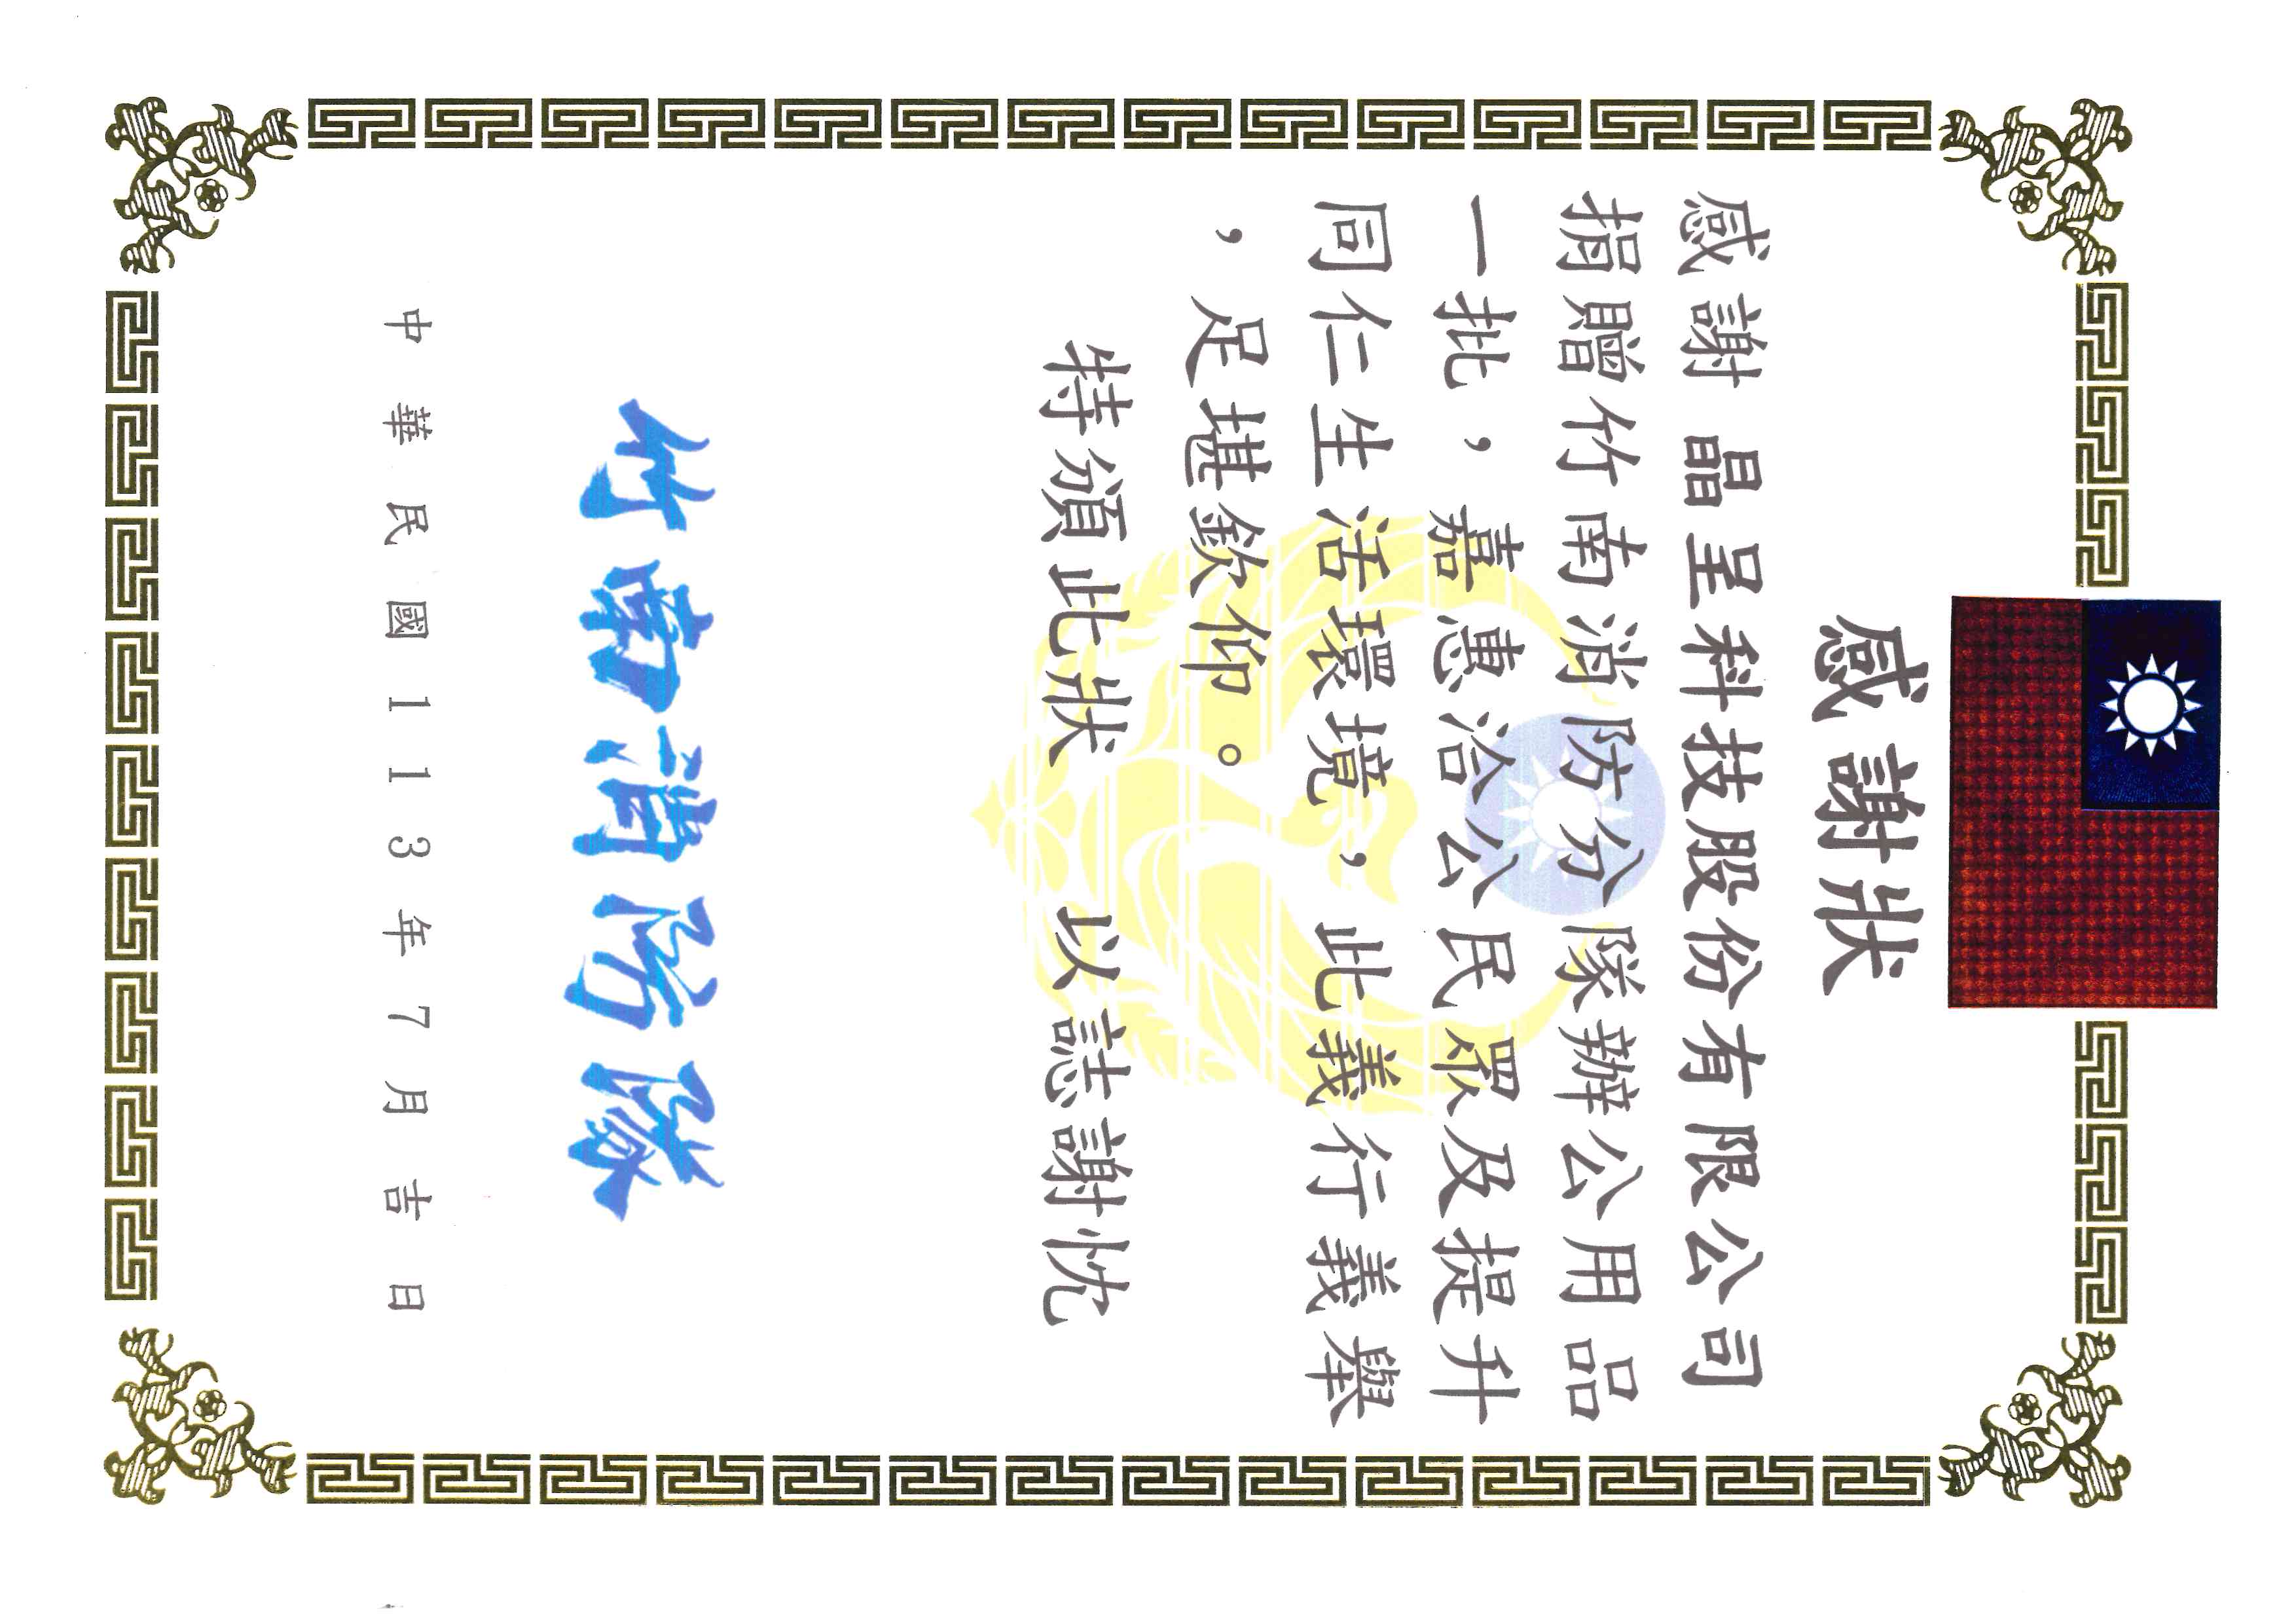 感謝狀
感謝 晶呈科技股份有限公司
捐贈竹南消防分隊辦公用品
一批，嘉惠洽公民眾及提升
同仁生活環境，此義行義舉
，足堪欽仰。
特頒此狀 以誌謝忱
竹南消防隊
中華民國113年7月吉日